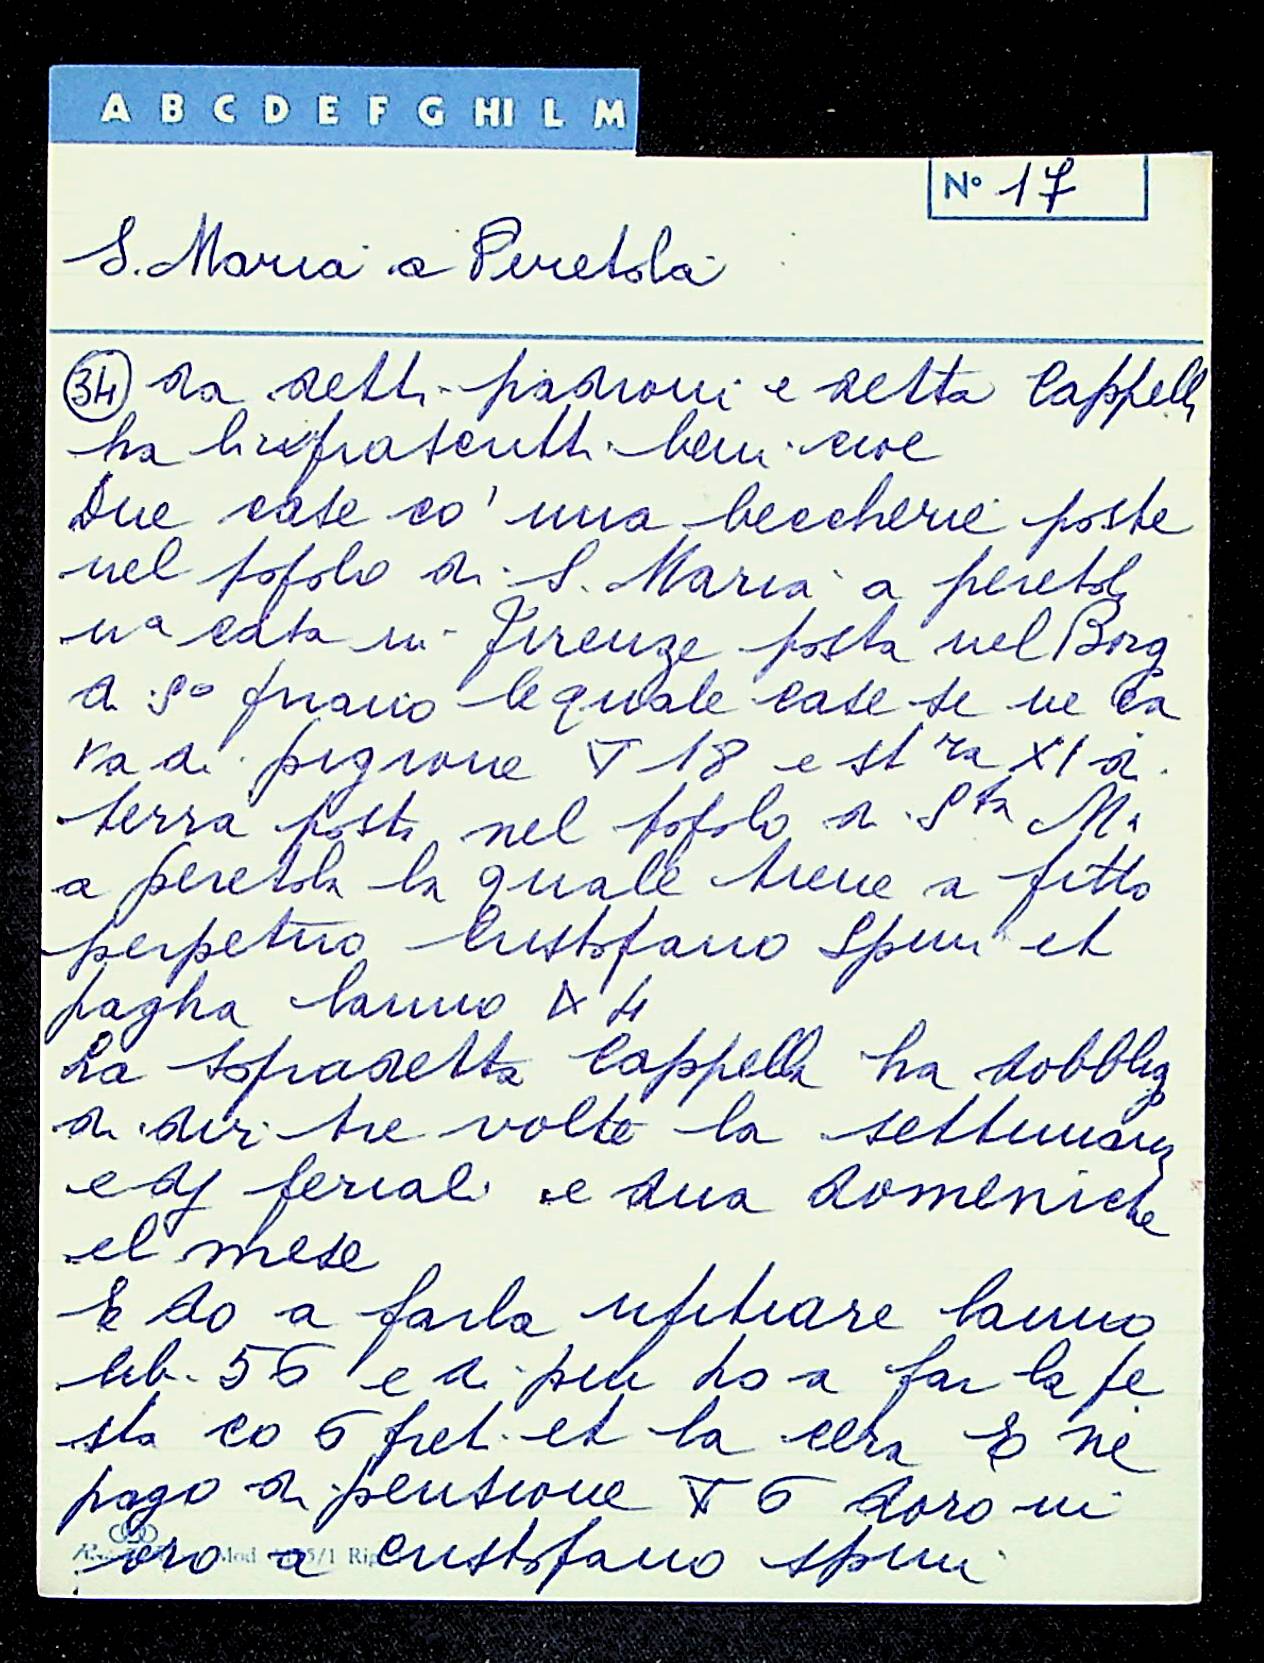 A B C D E F G HI L M
N° 17
S. Maria a Peretola
34 da detti padroni e detta Cappella
ha li infrascritti beni cioe
Due case co' una beccherie poste
nel popolo di S. Maria a peretola
una casa in Firenze posta nel Borg
di S° friano le quale case se ne ca
va di pigione ∇ 18 e st ra XI di
terra posti nel popolo di Sta M.
a peretola la quale tiene a fitto
perpetuo Cristofano Spini et
pagha lanno 4
La sopradetta Cappella ha dobblig
di dir tre volte la settimana
e dj feriali e dua domeniche
el mese
E do a farla uffitiare lanno
lib. 56 e di piu ho a far la fe
sta co 6 preti et la cera E ne
pago di pensione ∇ 6 doro in
oro a Cristofano spini
Mod 5/1 Rip